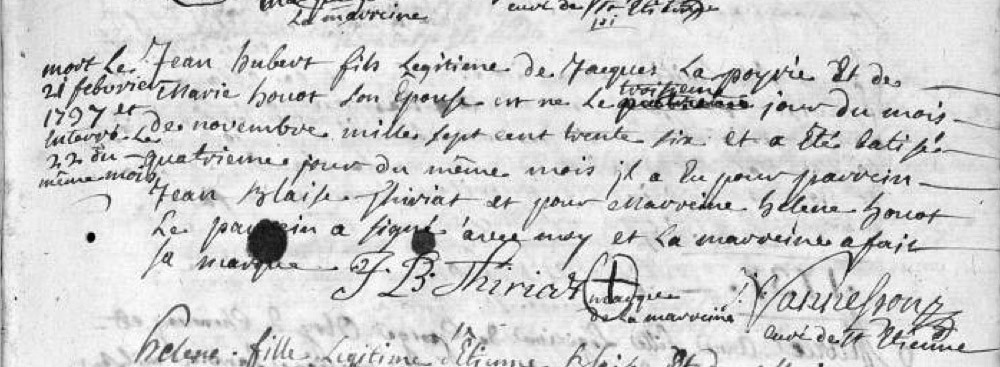 La marreine
curé de St Etienne
mort le
21 febvrier
1737 et
interré le
22 du
même mois
Jean hubert fils Legitime de Jacques La poyrie Et de
Marie houot son Epouse est ne Le troisieme jour du mois
de novembre mille sept cent trente six et a Eté batisé
quatrieme jour du même mois jl a Eu pour parrein
Jean Blaise Thiriat et pour Marreine helene houot
Le parrein a signé avec moy et La marreine a fait
sa marque
J B Thiriat
marque
de La marreine
Vannesson
curé de St Etienne
helene fille Legitime d'Etienne